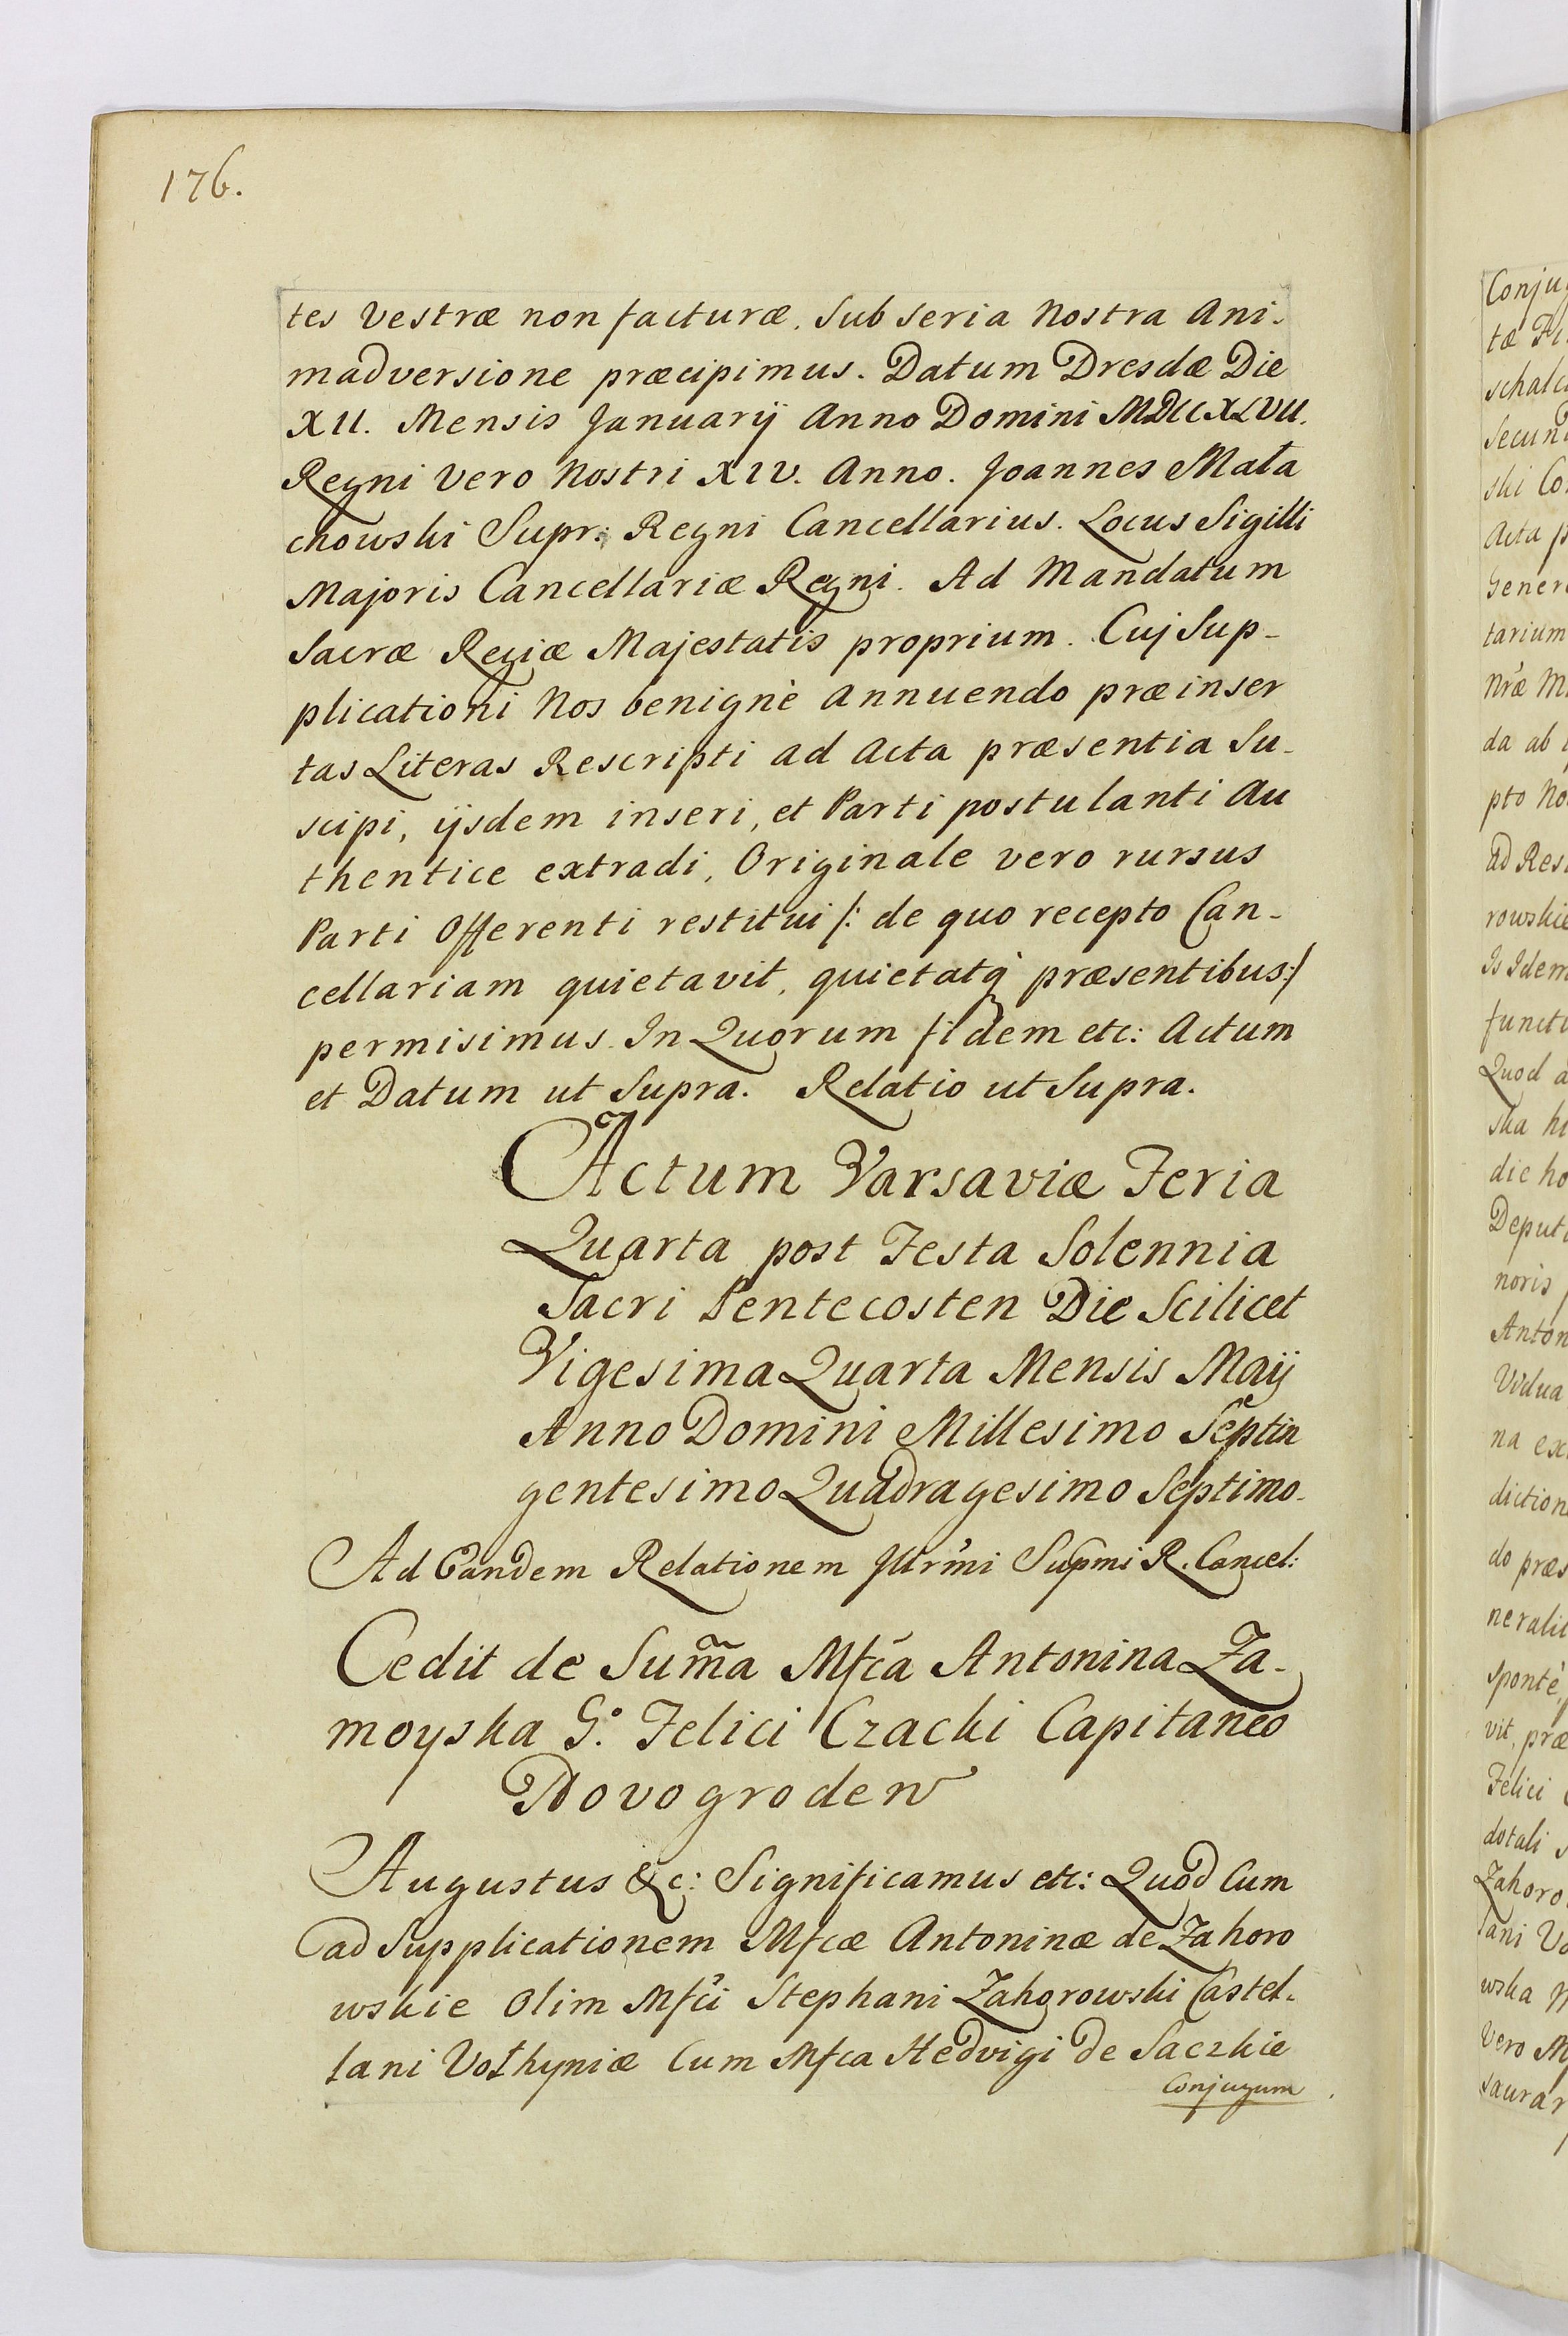 176.
tes Vestræ non facturæ, Sub seria Nostra Ani-
madversione præcipimus. Datum Dresdæ Die
XII. Mensis Januarij Anno Domini MDCCXLVII.
Regni Vero Nostri XIV. Anno. Joannes Mała
chowski Supr: Regni Cancellarius. Locus Sigilli
Majoris Cancellariæ Regni. Ad Mandatum
Sacræ Regiæ Majestatis proprium. Cuj Sup-
plicationi Nos benignè annuendo præinser
tas Literas Rescripti ad Acta præsentia Su-
scipi, ijsdem inseri, et Parti postulanti Au
thentice extradi, Originale vero rursus
Parti Offerenti restitui /: de quo recepto Can-
cellariam quietavit, quietatq præsentibus:/
permisimus. In Quorum fidem etc: Actum
et Datum ut Supra. Relatio ut Supra.
Actum Varsaviæ Feria
Quarta post Festa Solennia
Sacri Pentecosten Die Scilicet
Vigesima Quarta Mensis Maij
Anno Domini Millesimo Septin
gentesimo Quadragesimo Septimo.
Ad Eandem Relationem Illrmi Supmi R. Cancel:
Cedit de Suma̅ Mfca Antonina Za-
moyska G° Felici Czacki Capitaneo
Novogroden
Augustus &c: Significamus etc: Quod Cum
ad Supplicationem Mfcæ Antoninæ de Zahoro
wskie Olim Mfci Stephani Zahorowski Castel-
lani Vołhyniæ Cum Mfca Hedvigi de Saczkie
Conjugum
Conju
tæ
schalc
Secun
ski Co
Acta p
Gener
tarium
Nræ M
da ab
pto No
ad Res
rowskie
Is Idem
functi
Quod a
ska h
die ho
Deput
noris
Anton
Vidua
na ex
diction
do præs
neralit
Spontè,
vit, præ
Felici
dotali s
Zahoro
lani Vo
wska
Vero M
saurar